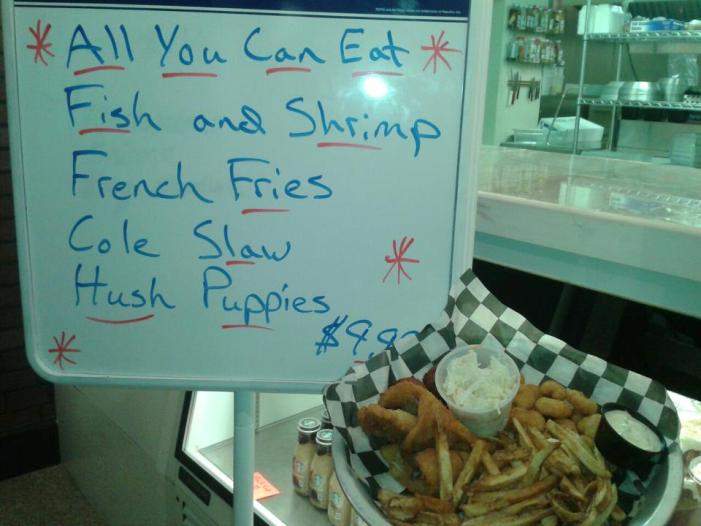 All You Can Eat
Fish and Shrimp
French Fries
Cole Slaw
Hush Puppies